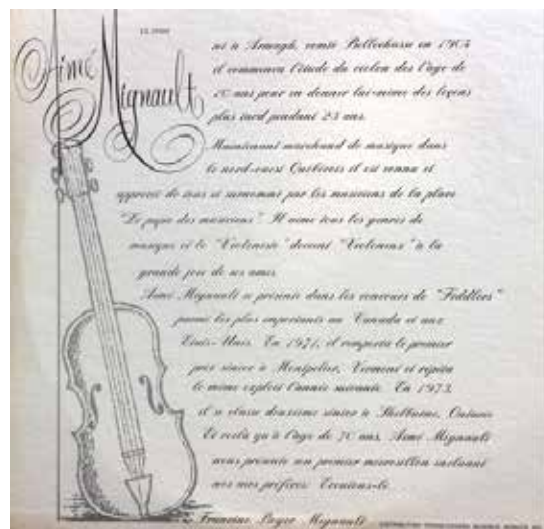 Aimé Mignault
né à Armagh, comté Bellechasse en 1904
il commença l'étude du violon dès l'âge de
10 ans pour en donner lui-même des leçons
plus tard pendant 23 ans.
Maintenant marchand de musique dans
le nord-ouest Québécois il est connu et
apprécié de tous et surnommé par les musiciens de la place
"Le papa des musiciens". Il aime tous les genres de
musique et le "Violoniste" devient "Violoneux" à la
grande joie de ses amis.
Aimé Mignault se présente dans les concours de "Fiddlers"
parmi les plus importants au Canada et aux
États-Unis. En 1971, il remporta le premier
prix sénior à Montpelier, Vermont et répéta
le même exploit l'année suivante. En 1973,
il se classe deuxième sénior à Shelburne, Ontario
Et voilà qu'à l'âge de 70 ans, Aimé Mignault
nous présente un premier microsillon incluant
ses airs préférés. Écoutons-le.
Francine Payer Mignault